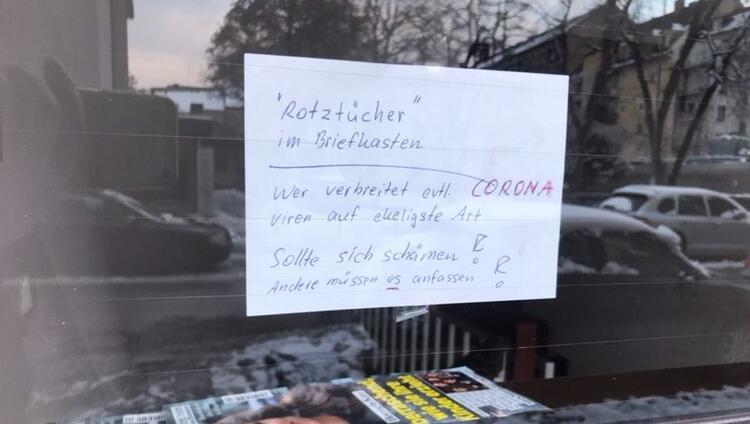 "Rotztücher"
im Briefkasten
Wer verbreitet evtl. CORONA
viren auf ekeligste Art
Sollte sich schämen!
Andere müssen es anfassen!